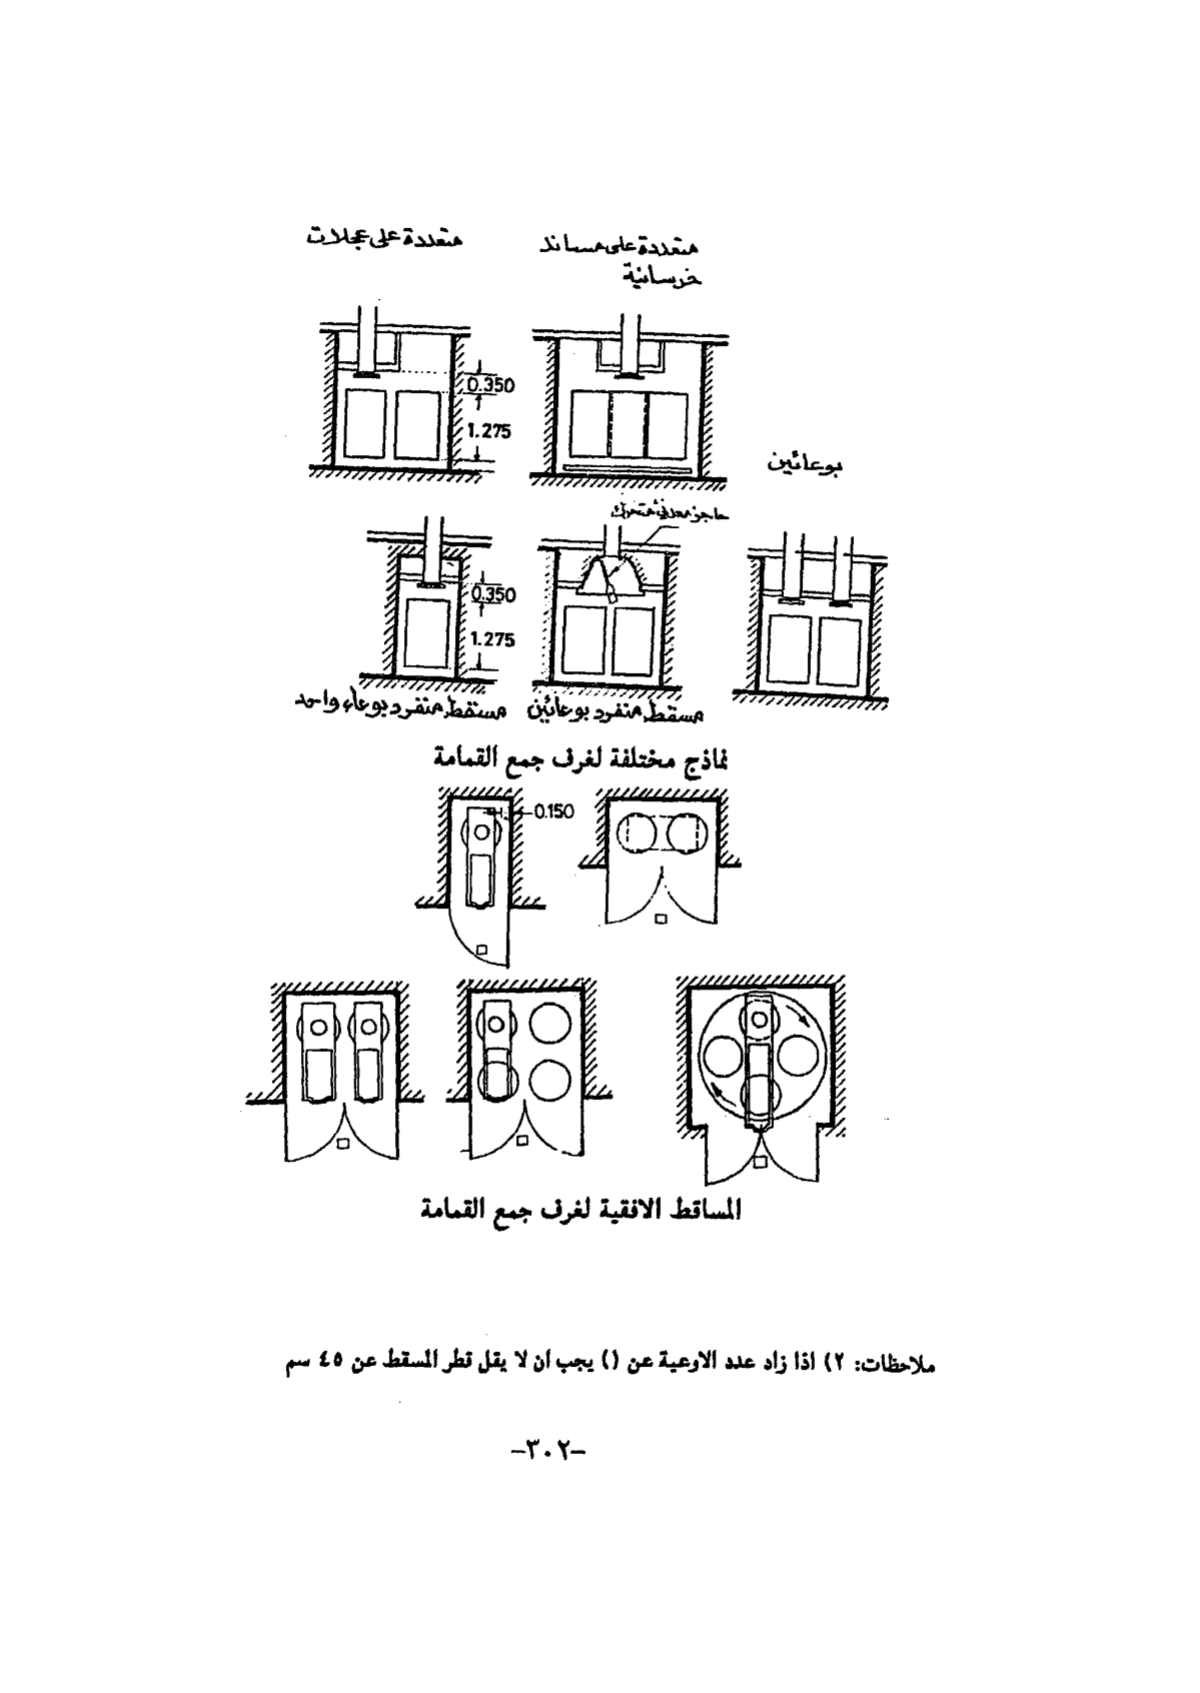 متعددة على مساند
خرسانية
متعددة على عجلات
0.350
1.275
بوعائين
حاجز معدني متحرك
0.350
1.275
مسقط منفرد بوعائين
مسقط منفرد بوعاء واحد
نماذج مختلفة لغرف جمع القمامة
0.150
المساقط الافقية لغرف جمع القمامة
ملاحظات: ٢) اذا زاد عدد الاوعية عن () يجب ان لا يقل قطر المسقط عن ٤٥ سم
-٣٠٢-